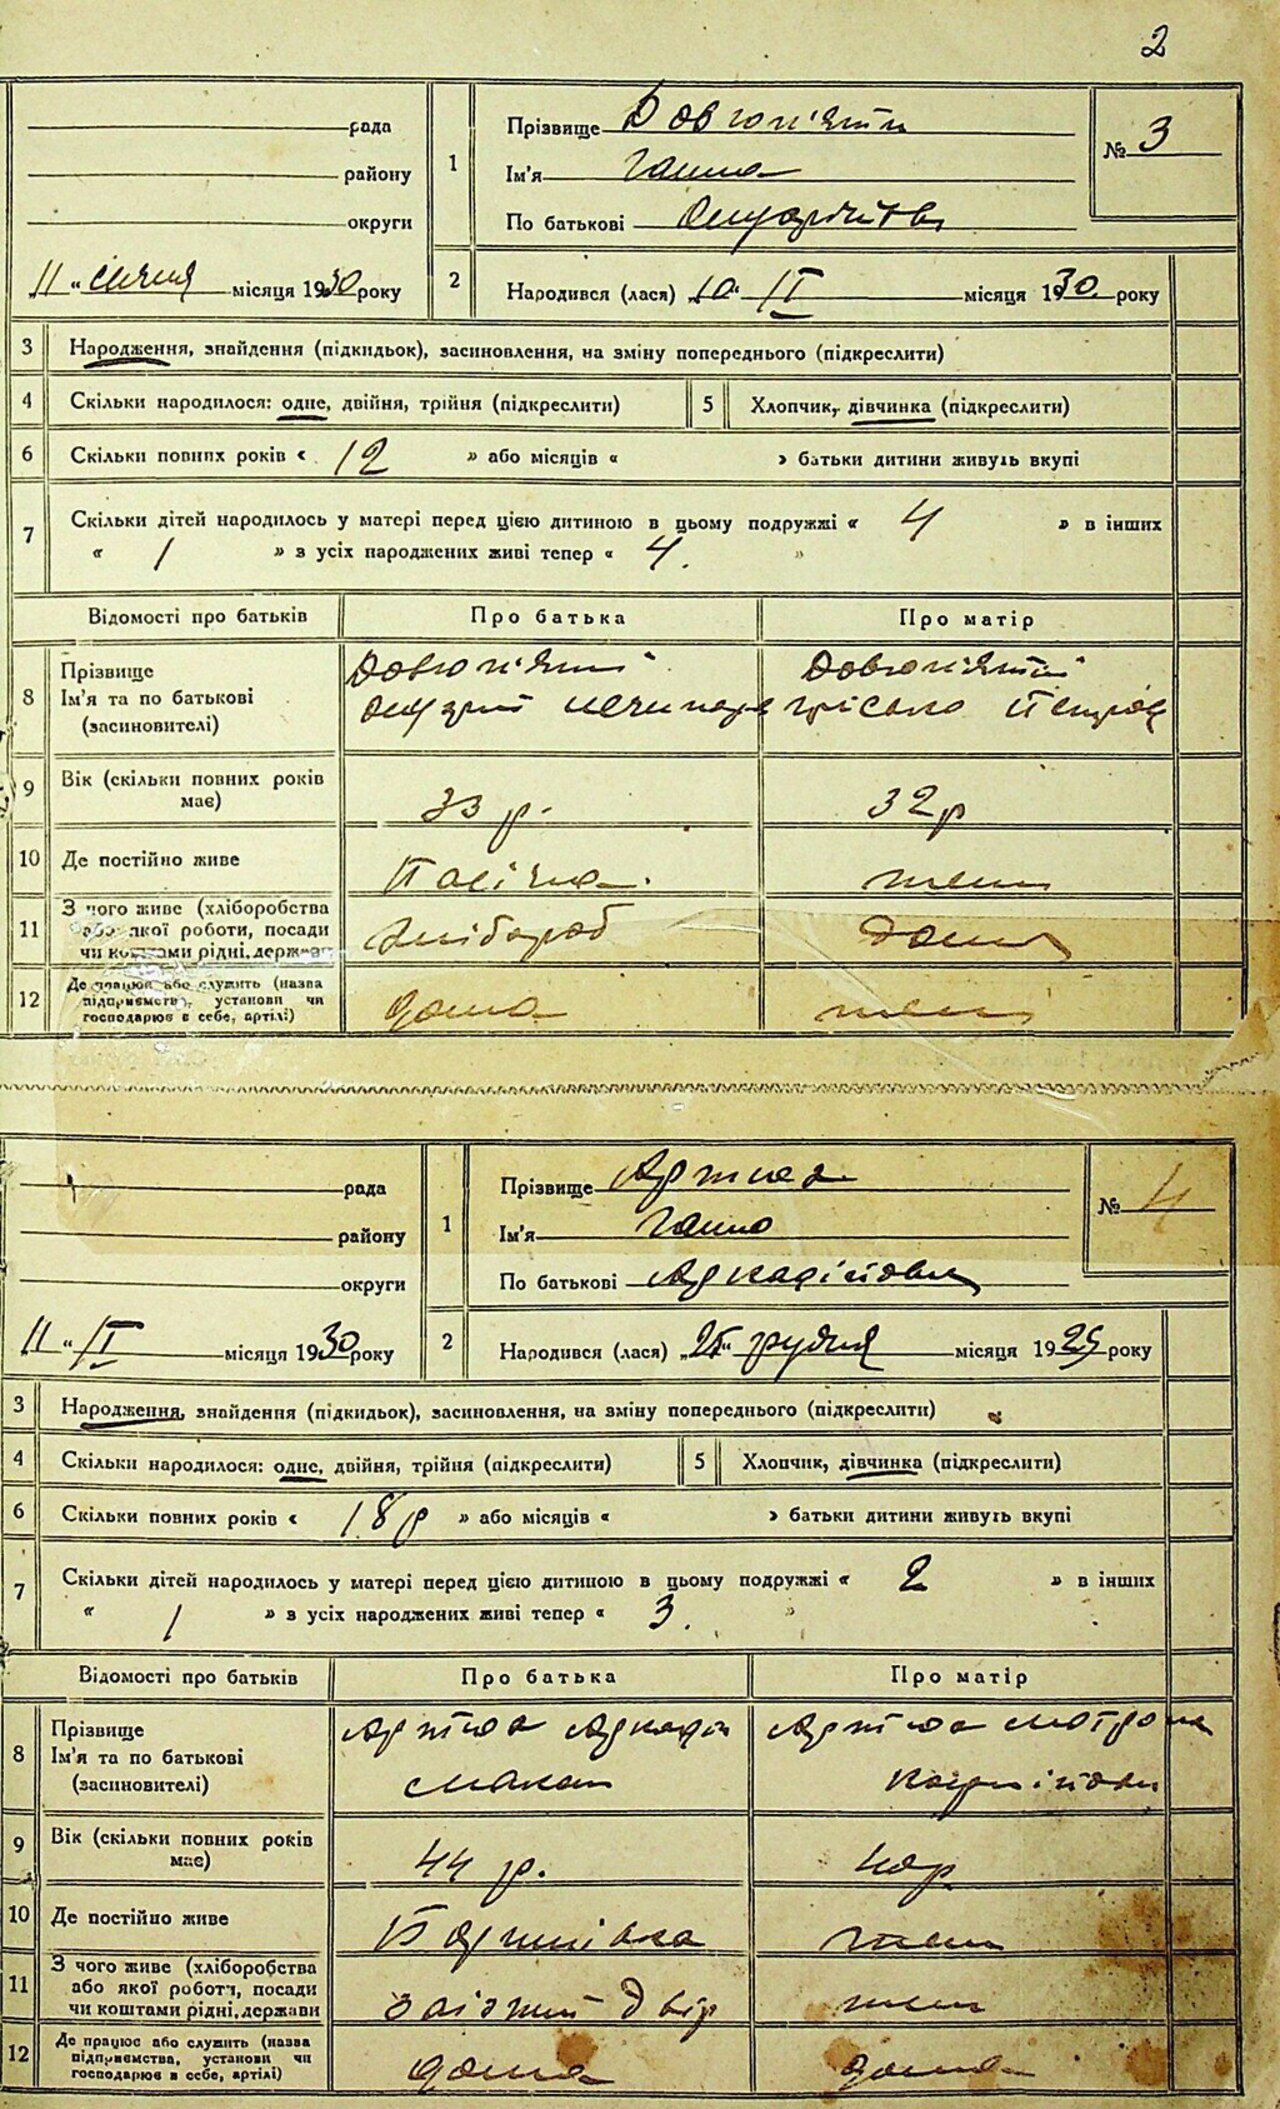 2
рада
району
округи
„11“ січня місяця 1930 року
1
Прізвище Довгоп'яти
Ім'я Ганна
По батькові
№ 3
2
Народився (лася) „10“ І місяця 1930 року
3
Народження, знайдення (підкидьок), засиновлення, на зміну попереднього (підкреслити)
4
Скільки народилося: одне, двійня, трійня (підкреслити)
5
Хлопчик, дівчинка (підкреслити)
6
Скільки повних років « 12 » або місяців « » батьки дитини живуть вкупі
7
Скільки дітей народилось у матері перед цією дитиною в цьому подружжі « 4 » в інших
« 1 » з усіх народжених живі тепер « 4. »
Відомості про батьків
Про батька
Про матір
8
Прізвище
Ім'я та по батькові
(засиновителі)
Довгоп'ятий
Довгоп'ятий
9
Вік (скільки повних років
має)
33 р.
32 р
10
Де постійно живе
Пасічна.
теж
11
З чого живе (хліборобства
або якої роботи, посади
чи коштами рідні, держави
хлібороб
12
Де працює або служить (назва
підприємства, установи чи
господарює в себе, артілі)
дома
теж
рада
району
округи
„11“ І місяця 1930 року
1
Прізвище
Ім'я Ганна
По батькові Аркадіївна
№ 4
2
Народився (лася) „25“ грудня місяця 1929 року
3
Народження, знайдення (підкидьок), засиновлення, на зміну попереднього (підкреслити)
4
Скільки народилося: одне, двійня, трійня (підкреслити)
5
Хлопчик, дівчинка (підкреслити)
6
Скільки повних років « 18 р » або місяців « » батьки дитини живуть вкупі
7
Скільки дітей народилось у матері перед цією дитиною в цьому подружжі « 2 » в інших
« 1 » з усіх народжених живі тепер « 3. »
Відомості про батьків
Про батька
Про матір
8
Прізвище
Ім'я та по батькові
(засиновителі)
Аркадій
Мотрона
9
Вік (скільки повних років
має)
44 р.
40 р.
10
Де постійно живе
теж
11
З чого живе (хліборобства
або якої роботи, посади
чи коштами рідні, держави
заізний двір
теж
12
Де працює або служить (назва
підприємства, установи чи
господарює в себе, артілі)
дома
дома